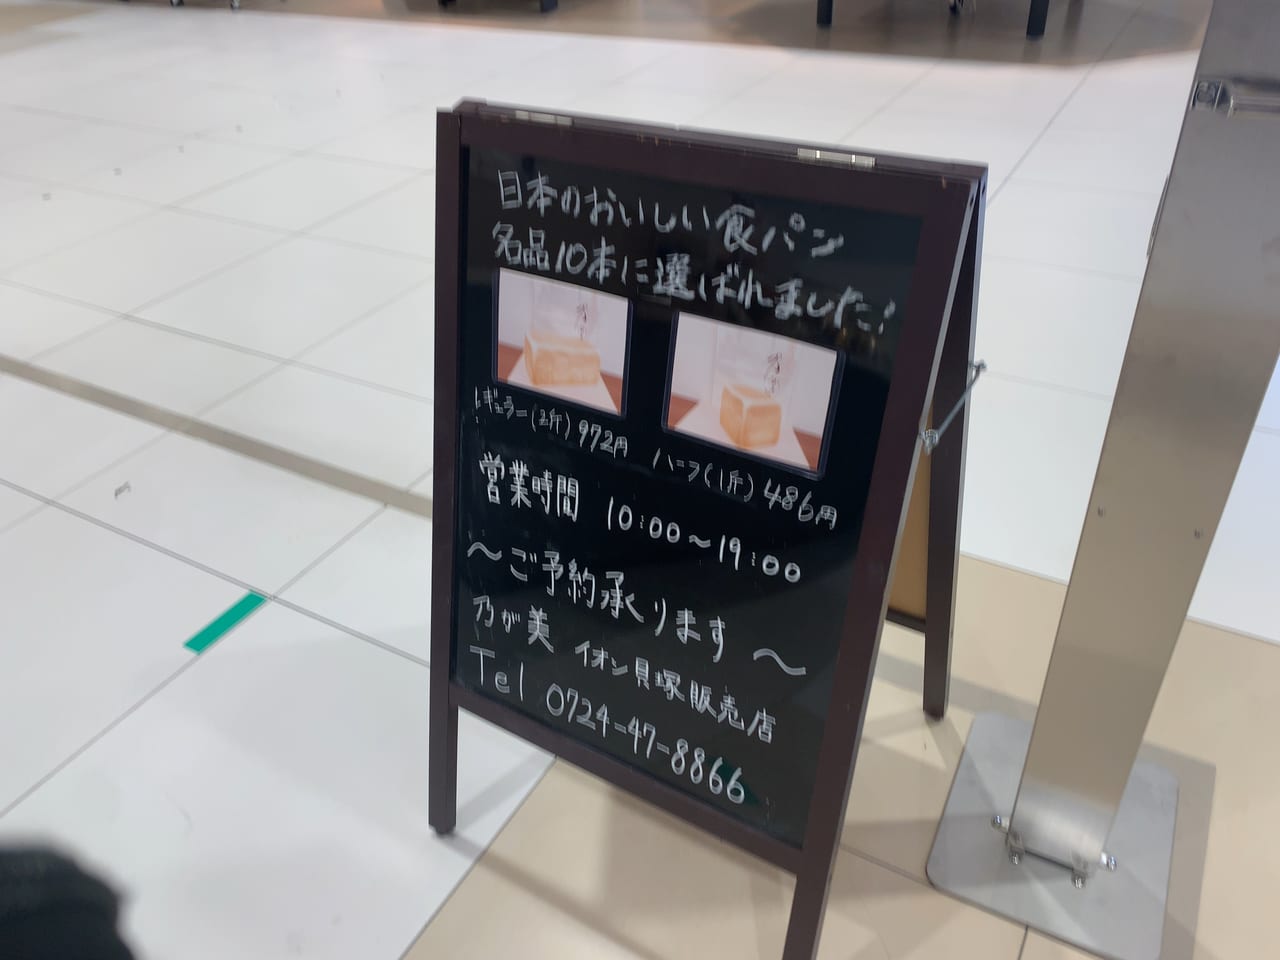 日本のおいしい食パン
名品10本に選ばれました!
レギュラー(2斤) 972円
ハーフ(1斤) 486円
営業時間 10:00~19:00
~ご予約承ります~
乃が美 イオン貝塚販売店
Tel 0724-47-8866